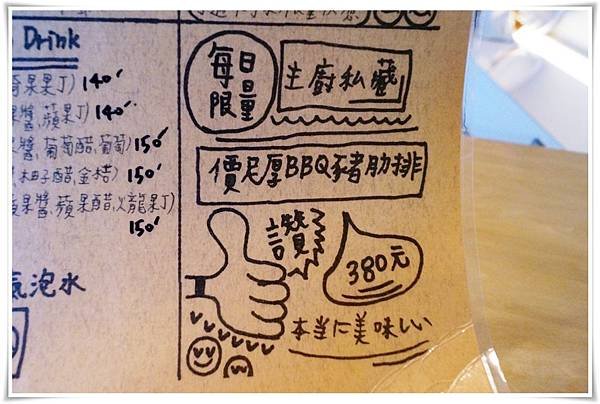 Drink
奇果果丁) 140
果醬,蘋果丁) 140
醬,葡萄醋,葡萄) 150
柚子醋,金桔) 150
果醬,蘋果醋,火龍果丁)
150
氣泡水
每日
限量
主廚私藏
價尼厚BBQ豬肋排
讚
380元
本当に美味しい